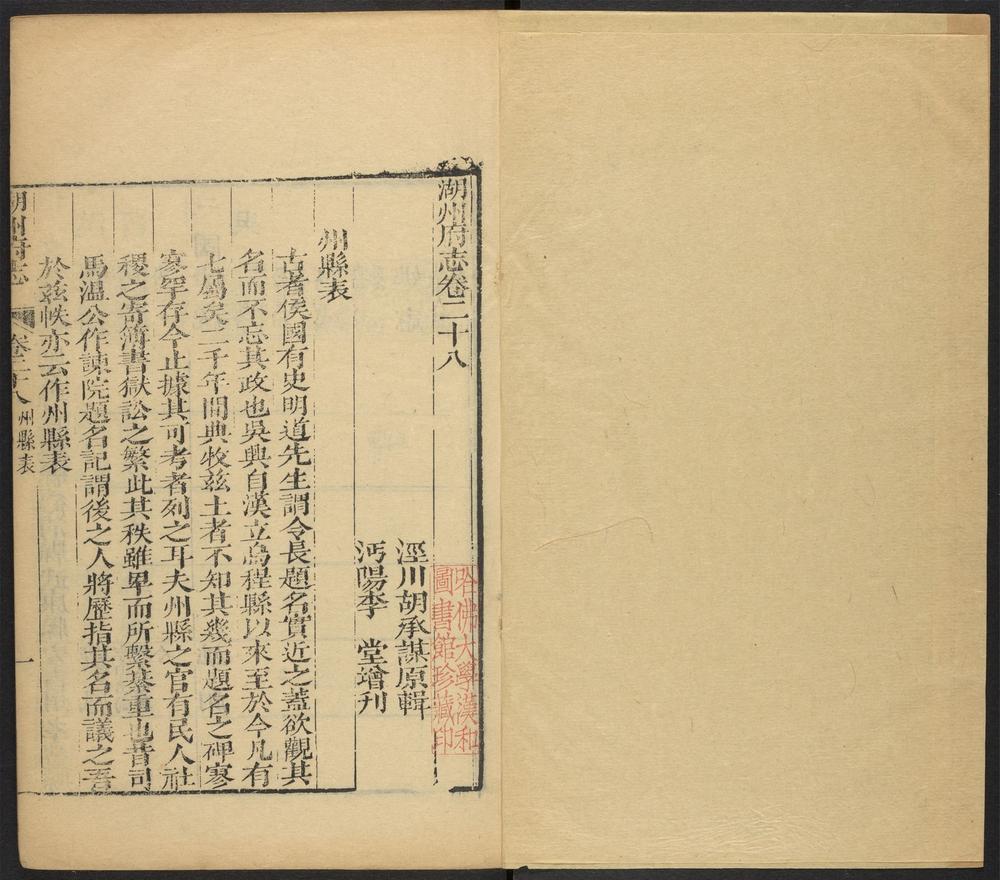 湖州府志卷二十八
涇川胡承謀原輯
沔陽李　堂增刊
州縣表
古者侯國有史明道先生謂令長題名實近之蓋欲觀其
名而不忘其政也吳興自漢立烏程縣以來至於今凡有
七屬矣二千年間典牧茲土者不知其幾而題名之碑寥
寥罕存今止據其可考者列之耳夫州縣之官有民人社
稷之寄簿書獄訟之繁此其秩雖卑而所繫綦重也昔司
馬溫公作諫院題名記謂後之人將歷指其名而議之吾
於茲帙亦云作州縣表
湖州府志
卷二十八
州縣表
一
哈佛大學漢和
圖書館珍藏印